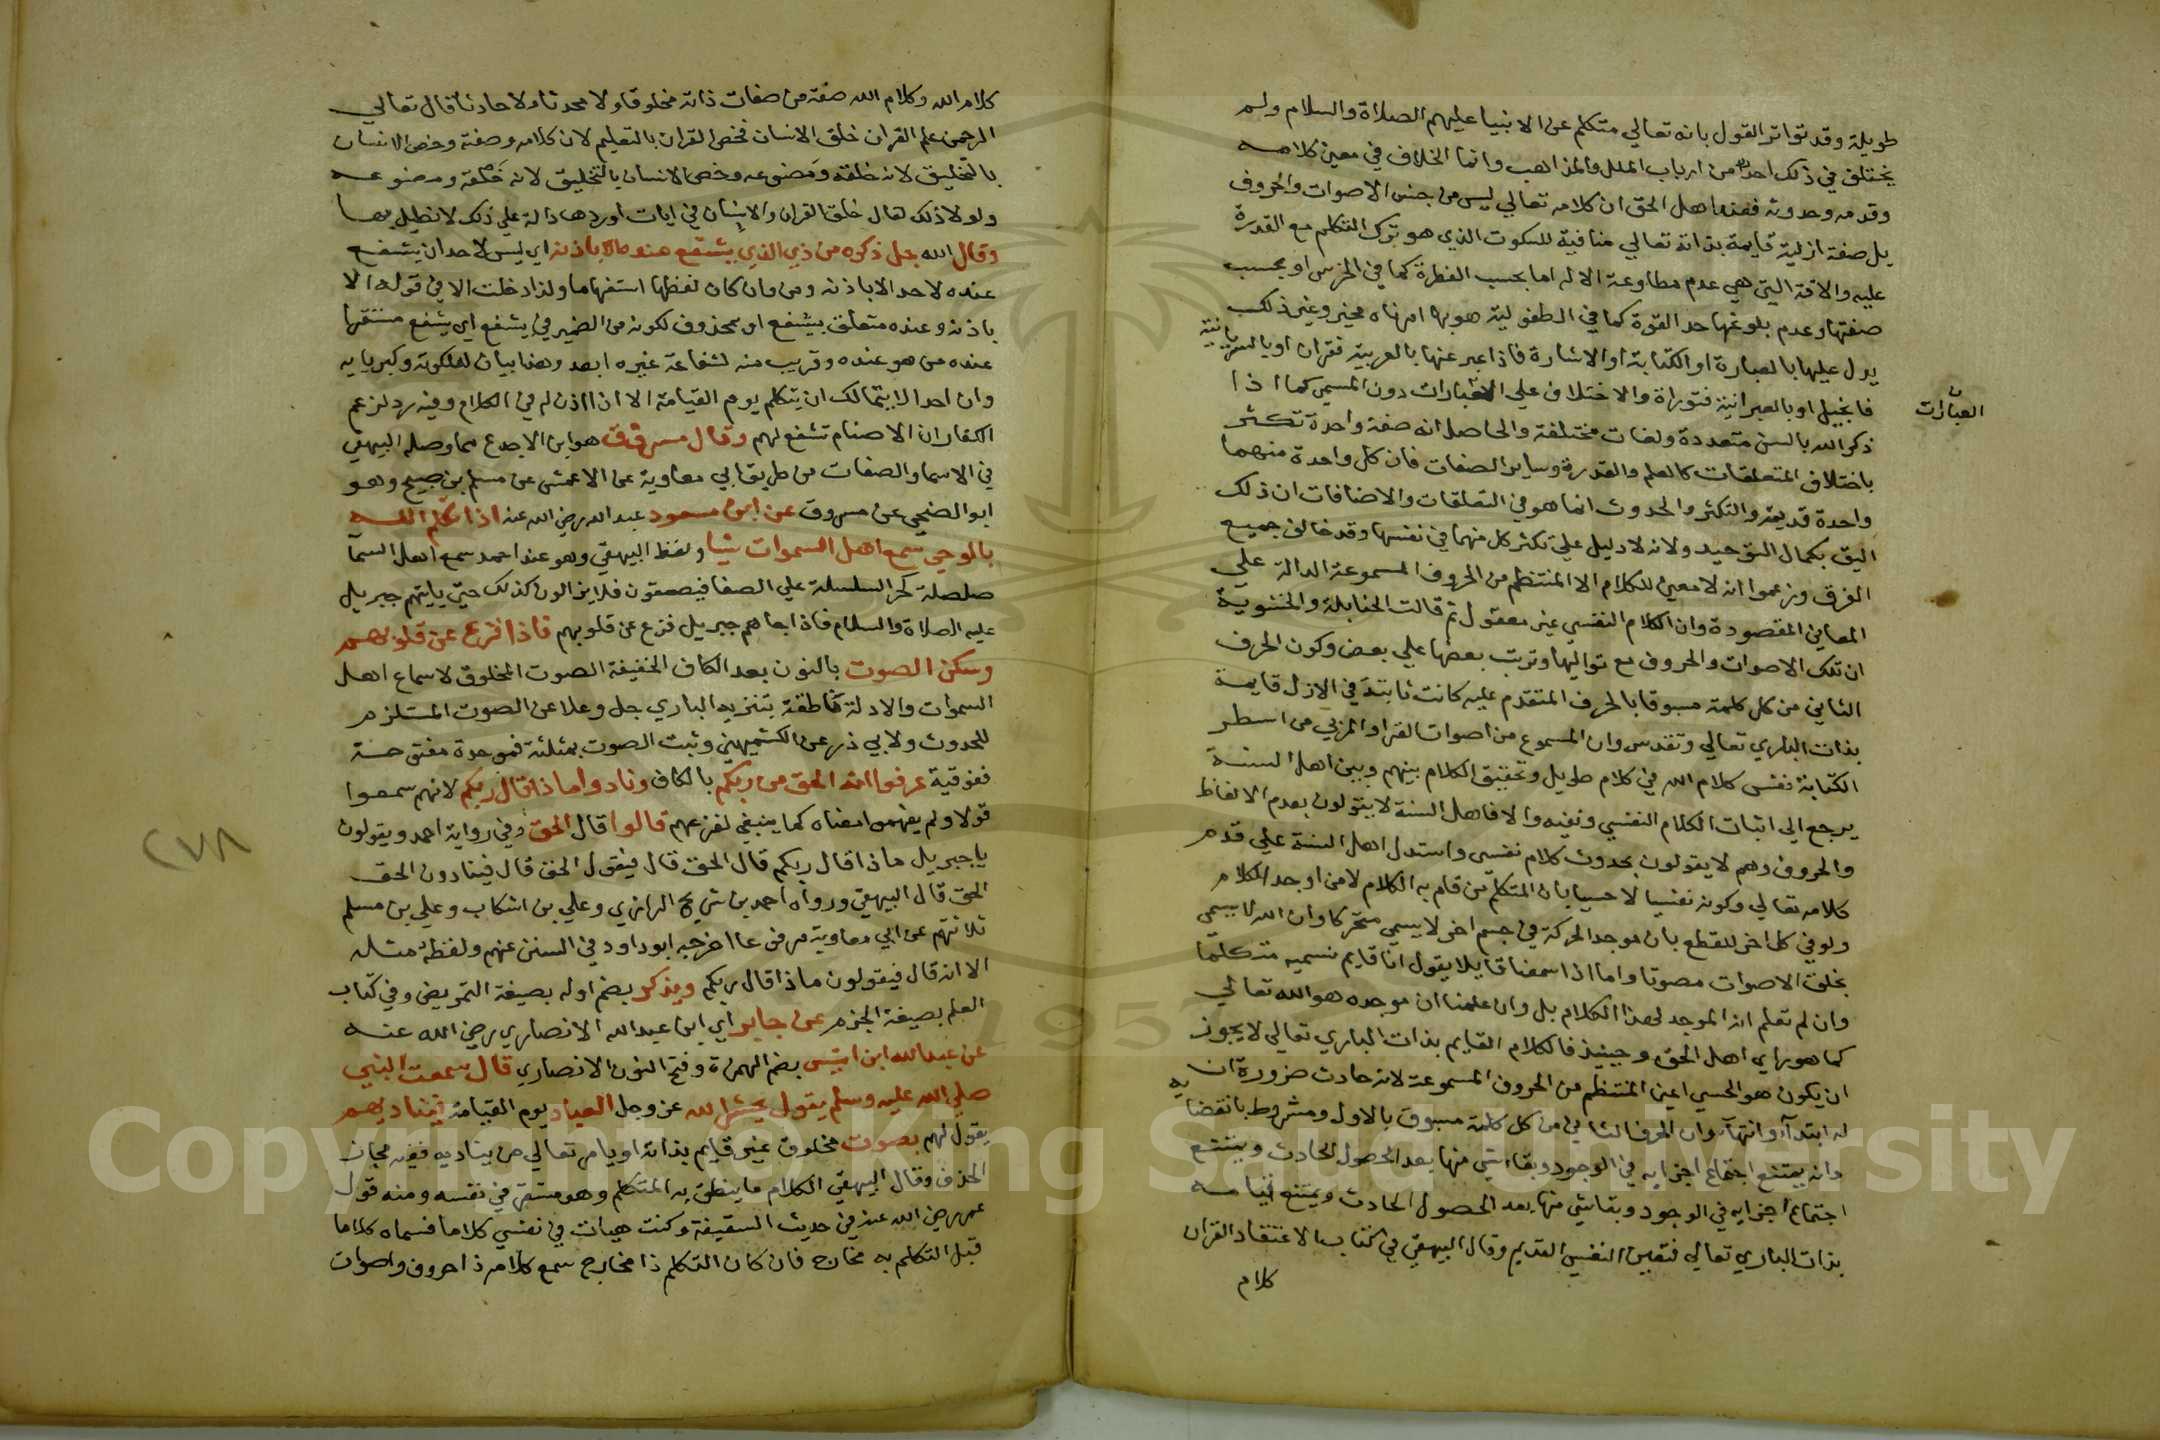 طويلة وقد تواتر القول بانه تعالي متكلم عن الانبيا عليهم الصلاة والسلام ولم
يختلف في ذلك احد من ارباب الملل والمذاهب وانما الخلاف في معني كلامه
وقدمه وحدوثه فعند اهل الحق ان كلامه تعالي ليس من جنس الاصوات والحروف
بل صفة ازلية قايمة بذاته تعالي منافية للسكوت الذي هو ترك التكلم مع القدرة
عليه والافة التي هي عدم مطاوعة الاله اما بحسب الفطرة كما في الخرس او بحسب
صنعتها وعدم بلوغها حد القوة كما في الطفولية هو بها امر ناه مخبر وغير ذلك
يدل عليها بالعبارة او الكتابة او الاشارة فاذا عبر عنها بالعربية فقران او بالسريانية
فانجيل او بالعبرانية فتوراة والاختلاف علي العبارات دون المسمي كما اذا
العبارات
ذكر الله بالسن متعددة ولغات مختلفة والحاصل انه صفة واحدة تكثر
باختلاف المتعلقات كالعلم والقدرة وساير الصفات فان كل واحدة منهما
واحدة قديمة والتكثر والحدوث انما هو في التعلقات والاضافات ان ذلك
اليق بكمال التوحيد ولانه لا دليل علي تكثر كل منهما في نفسها وقد خالف جميع
الفرق وزعموا انه لا معني للكلام الا المنتظم من الحروف المسموعة الدالة علي
المعاني المقصودة وان الكلام النفسي غير معقول ثم قالت الحنابلة والحشوية
ان تلك الاصوات والحروف مع تواليها وترتب بعضها علي بعض وكون الحرف
الثاني من كل كلمة مسبوقا بالحرف المتقدم عليه كانت ثابتة في الازل قايمة
بذات الباري تعالي وتقدس وان المسموع من اصوات القرا والمربي من اسطر
الكتابة نفس كلام الله في كلام طويل وتحقيق الكلام بينهم وبين اهل السنة
يرجع الي اثبات الكلام النفسي ونفيه والا فاهل السنة لا يقولون بقدم الالفاظ
والحروف وهم لا يقولون بحدوث كلام نفسي واستدل اهل السنة علي قدم
كلامه تعالي وكونه نفسيا لا حسيا بان المتكلم من قام به الكلام لا من اوجد الكلام
ولو في كل اخر للقطع بان موجد الحركة في جسم اخر لا يسمي متحركا وان الله لا يسمي
بخلق الاصوات مصوتا واما اذا سمعنا قايلا يقول انا قايم نسميه متكلما
وان لم نعلم انه الموجد لهذا الكلام بل وان علمنا ان موجده هو الله تعالي
كما هو راي اهل الحق وحينيذ فالكلام القايم بذات الباري تعالي لا يجوز
ان يكون هو الحسي اعني المنتظم من الحروف المسموعة لانه حادث ضرورة ان
له ابتدا وانتها وان الحرف الثاني من كل كلمة مسبوق بالاول ومشروط بانقضايه
وانه يمتنع اجتماع اجزايه في الوجود وبقا شي منها بعد الحصول الحادث ويمتنع
اجتماع اجزايه في الوجود وبقا شي منها بعد الحصول الحادث ويمتنع قيامه
بذات الباري تعالي فتعين النفسي القديم وقال البيهقي في كتاب الاعتقاد القران
كلام
كلام الله وكلام الله صفة من صفات ذاته مخلوقا ولا محدثا ولا حادثا قال تعالي
الرحمن علم القران خلق الانسان فخص القران بالتعليم لان كلامه وصفته وخص الانسان
بالتخليق لانه خلقه ومصنوعه وخص الانسان بالتخليق لانه خلقه ومصنوعه
ولولا ذلك لقال خلق القران والانسان في ايات اوردها دالة علي ذلك لا نطيل بها
وقال الله جل ذكره من ذي الذي يشفع عنده الا باذنه اي ليس لاحد ان يشفع
عنده لاحد الا باذنه ومن وان كان لفظها استفهاما ولذا دخلت الا في قوله الا
باذنه وعنده متعلق بيشفع او بمحذوف لكونه من الضمير في يشفع اي يشفع مستقرا
عنده من هو عنده وقريب منه لشفاعة غيره ابعد وهذا بيان لملكوته وكبريايه
وان احدا لا يتمالك ان يتكلم يوم القيامة الا اذا اذن له في الكلام وفيه رد لزعم
الكفار ان الاصنام تشفع لهم وقال مسروق هو ابن الاجدع مما وصله البيهقي
في الاسما والصفات من طريق ابي معاوية عن الاعمش عن مسلم بن صبيح وهو
ابو الضحي عن مسروق عن ابن مسعود عبد الله رضي الله عنه اذا تكلم الله
بالوحي سمع اهل السموات شيا ولفظ البيهقي وهو عند احمد سمع اهل السما
صلصلة كجر السلسلة علي الصفا فيصعقون فلا يزالون كذلك حتي ياتيهم جبريل
عليه الصلاة والسلام فاذا جاهم جبريل فزع عن قلوبهم فاذا فزع عن قلوبهم
وسكن الصوت بالنون بعد الكاف الخفيفة الصوت المخلوق لاسماع اهل
السموات والادلة قاطفة بتنزيه الباري جل وعلا عن الصوت المستلزم
للحدوث ولابي ذر عن الكشميهني وثبت الصوت بمثلثة فموحدة مفتوحة
ففوقية عرفوا انه الحق من ربكم بالكاف ونادوا ماذا قال ربكم لانهم سمعوا
قولا ولم يفهموا معناه كما ينبغي لفزعهم قالوا قال الحق وفي رواية احمد ويقولون
ياجبريل ماذا قال ربكم قال الحق قال فيقول الحق قال فينادون الحق
الحق قال البيهقي ورواه احمد بن شريح الرازي وعلي بن اشكاب وعلي بن مسلم
ثلاثتهم عن ابي معاوية مرفوعا اخرجه ابو داود في السنن عنهم ولفظه مثله
الا انه قال فيقولون ماذا قال ربكم ويذكر بضم اوله بصيغة التمريض وفي كتاب
العلم بصيغة الجزم عن جابر اي ابن عبد الله الانصاري رضي الله عنه
عن عبد الله ابن انيس بضم الهمزة وفتح النون الانصاري قال سمعت النبي
صلي الله عليه وسلم يقول يحشر الله عز وجل العباد يوم القيامة فيناديهم
يقول لهم بصوت مخلوق غير قايم بذاته او يامر تعالي من يناديه ففيه مجاز
الحذف وقال البيهقي الكلام ما ينطق به المتكلم وهو مستقر في نفسه ومنه قول
عمر رضي الله عنه في حديث السقيفة وكنت هيات في نفسي كلاما فسماه كلاما
قبل التكلم به مخارج فان كان التكلم ذا مخارج سمع كلامه ذا حروف واصوات
٢٧٨
Copyright © King Saud University
1957